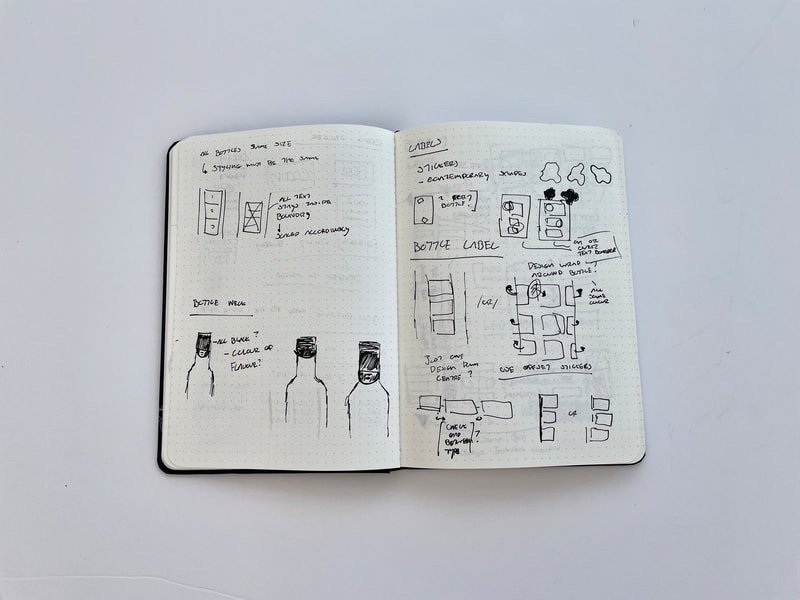 ALL BOTTLES SAME SIZE
↳ STYLING MUST BE THE SAME
ALL TEXT
STAYS INSIDE
BOUNDARY
↓
SCALED ACCORDINGLY
BOTTLE NECK
- ALL BLACK?
- COLOUR OF
FLAVOUR?
LABELS
STICKERS
- CONTEMPORARY SHAPES
BOTTLE?
ON OR
OVER?
TEXT
BOTTLE LABEL
DESIGN WRAP
AROUND BOTTLE?
/OR/
ALL
SAME
COLOUR
JUST ONE
DESIGN
CENTRE?
USE OFFSET STICKERS
OR
CHECK
BETWEEN
TYPE
?